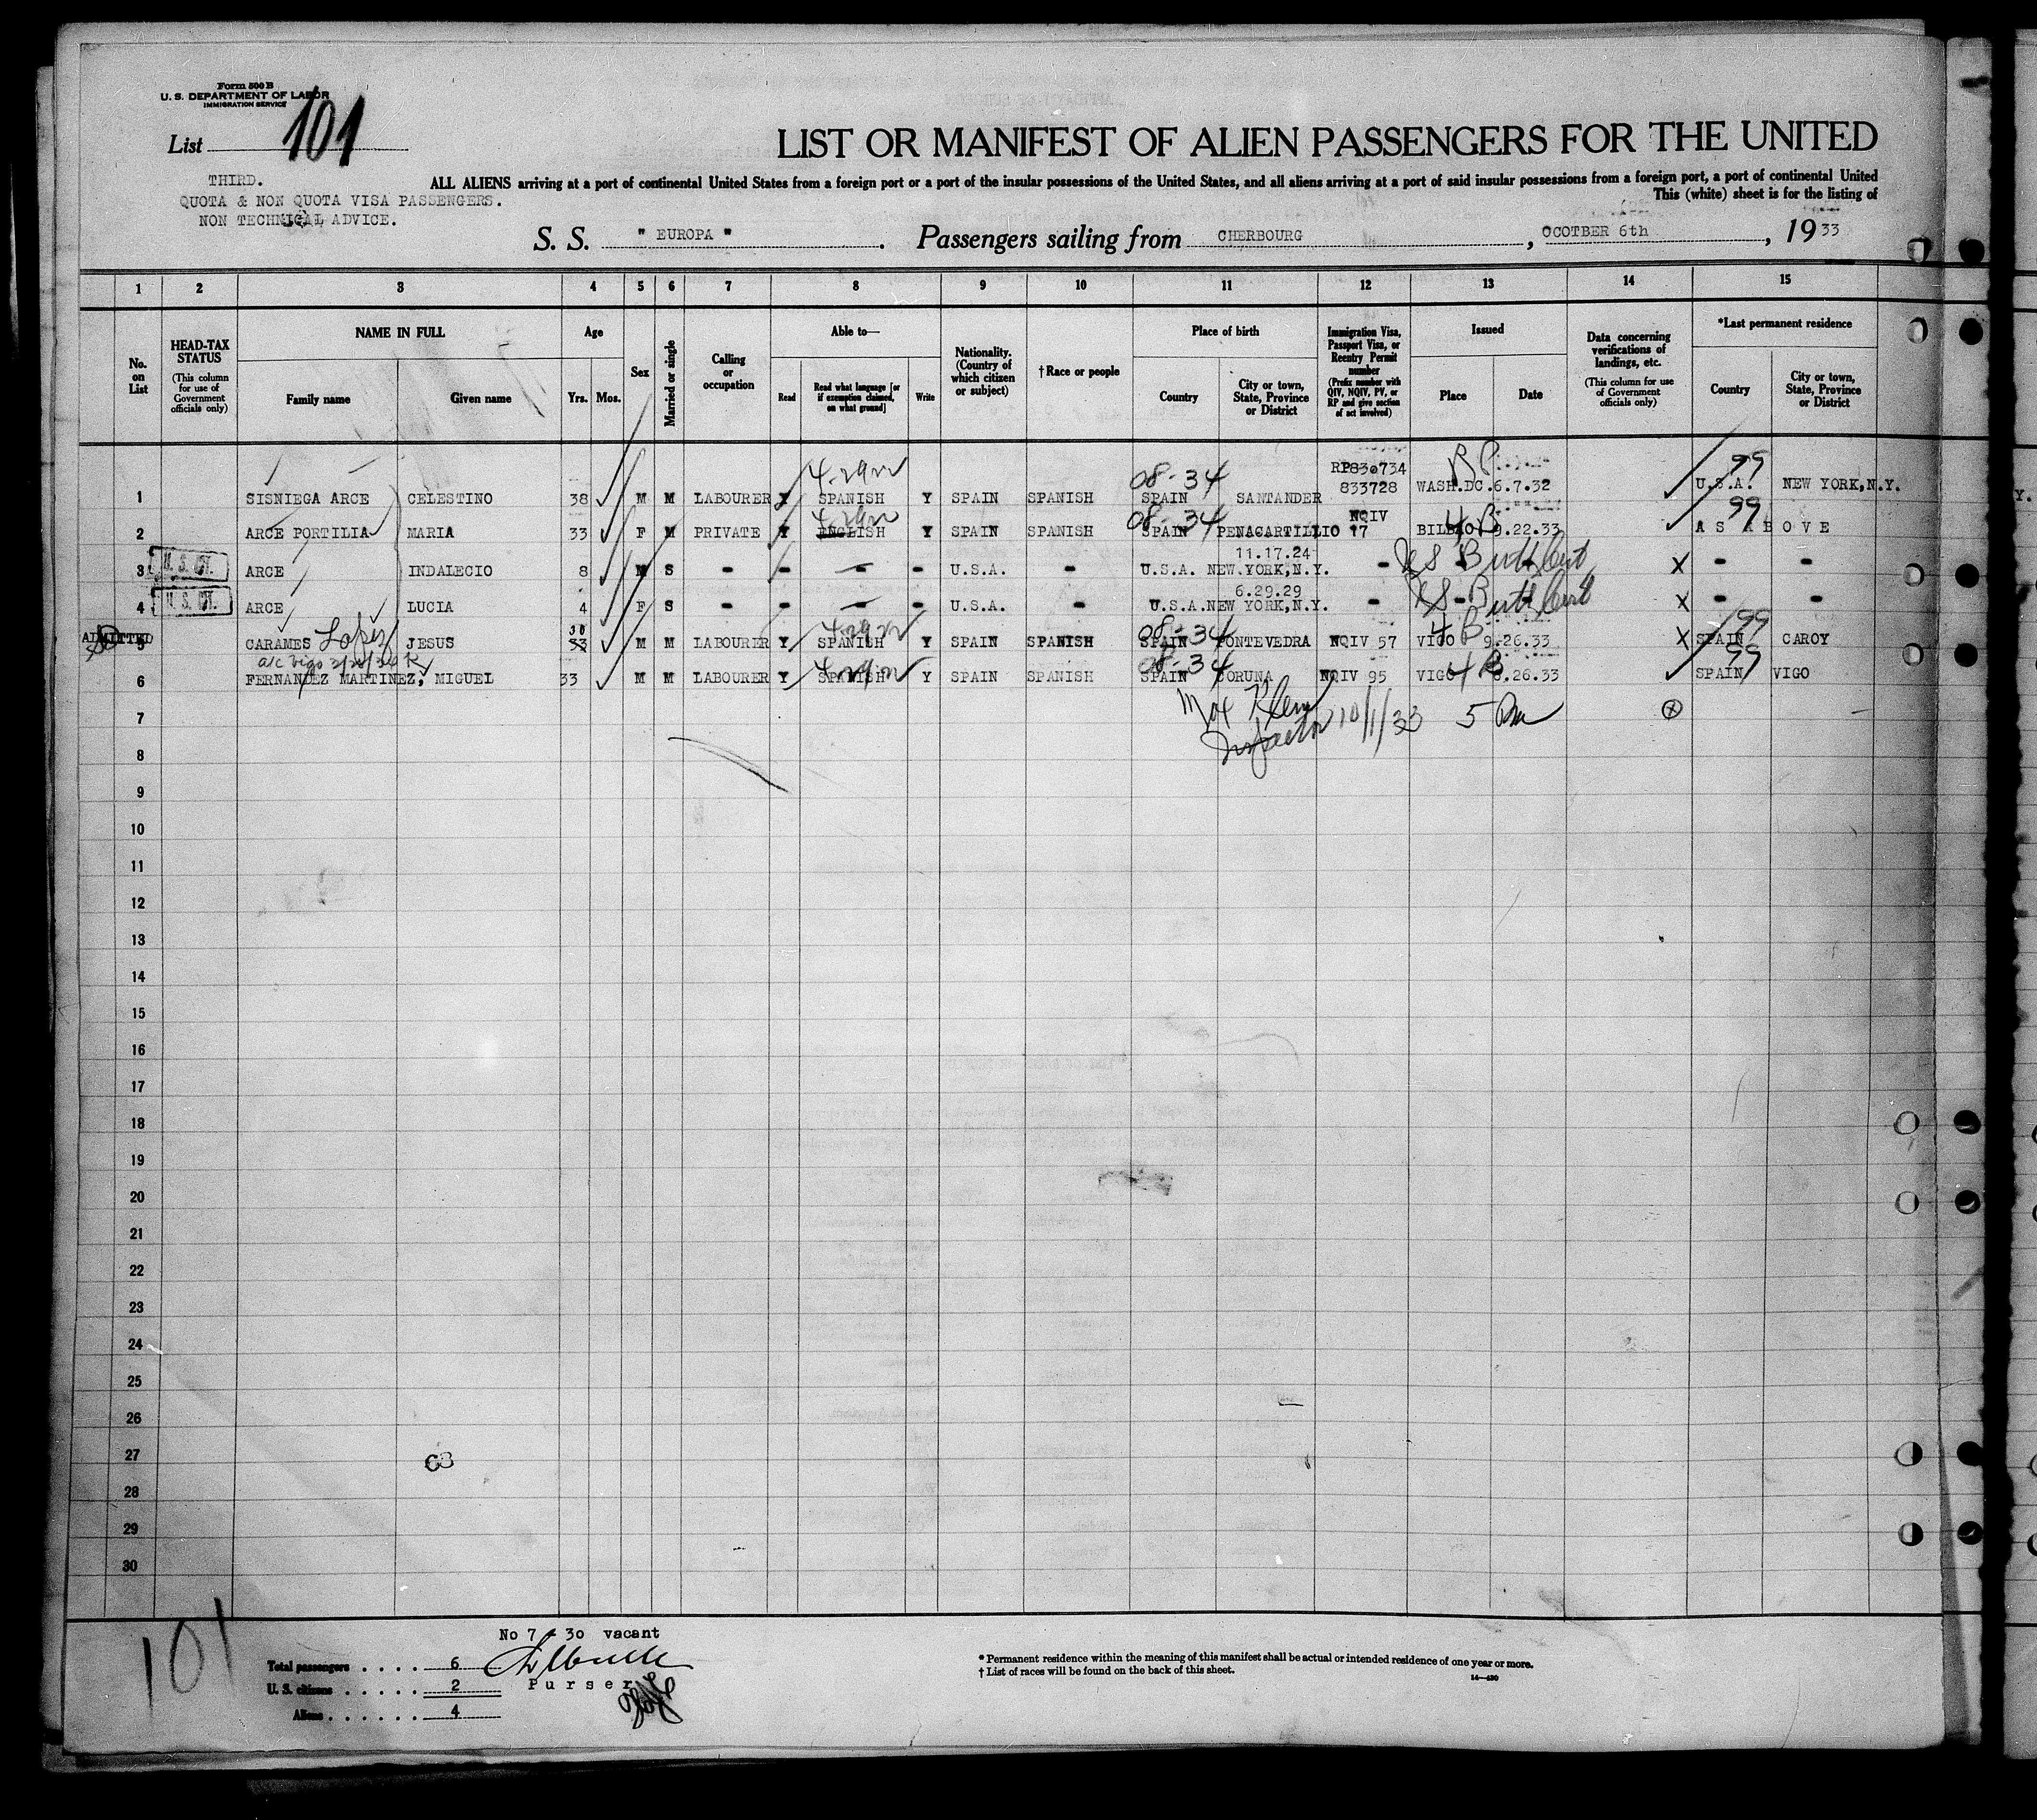 Form 500 B
U. S. DEPARTMENT OF LABOR
IMMIGRATION SERVICE
List 101
LIST OR MANIFEST OF ALIEN PASSENGERS FOR THE UNITED
THIRD.
QUOTA & NON QUOTA VISA PASSENGERS.
NON TECHNICAL ADVICE.
ALL ALIENS arriving at a port of continental United States from a foreign port or a port of the insular possessions of the United States, and all aliens arriving at a port of said insular possessions from a foreign port, a port of continental United
This (white) sheet is for the listing of
S. S. " EUROPA " . Passengers sailing from CHERBOURG , OCOTBER 6th , 19 33
1 2 3 4 5 6 7 8 9 10 11 12 13 14 15
No. on List
HEAD-TAX STATUS
(This column for use of Government officials only)
NAME IN FULL
Family name Given name
Age
Yrs. Mos.
Sex
Married or single
Calling or occupation
Able to—
Read
Read what language [or if exemption claimed, on what ground]
Write
Nationality. (Country of which citizen or subject)
† Race or people
Place of birth
Country
City or town, State, Province or District
Immigration Visa, Passport Visa, or Reentry Permit number
(Prefix number with QIV, NQIV, PV, or RP and give section of act involved)
Issued
Place Date
Data concerning verifications of landings, etc.
(This column for use of Government officials only)
*Last permanent residence
Country
City or town, State, Province or District
4-29 08-34 RP830734 RP 99
1 SISNIEGA ARCE CELESTINO 38 M M LABOURER Y SPANISH Y SPAIN SPANISH SPAIN SANTANDER 833728 WASH.DC. 6.7.32 U.S.A. NEW YORK,N.Y.
4-29 08-34 NQIV 4 B 99
2 ARCE PORTILIA MARIA 33 F M PRIVATE Y ENGLISH Y SPAIN SPANISH SPAIN PENACARTILLIO 17 BILBAO 9.22.33 A S A B O V E
U. S. CIT. 11.17.24
3 ARCE INDALECIO 8 M S - - - - U.S.A. - U.S.A. NEW YORK,N.Y. - US Birth Cert X - -
U. S. CIT. 6.29.29
4 ARCE LUCIA 4 F S - - - - U.S.A. - U.S.A. NEW YORK,N.Y. - US Birth Cert X - -
ADMITTED 30 4-29 08-34 4 B 99
5 CARAMES Lopez JESUS 33 M M LABOURER Y SPANISH Y SPAIN SPANISH SPAIN PONTEVEDRA NQIV 57 VIGO 9.26.33 X SPAIN CAROY
4-29 08-34 4 B 99
6 FERNANDEZ MARTINEZ, MIGUEL 33 M M LABOURER Y SPANISH Y SPAIN SPANISH SPAIN CORUNA NQIV 95 VIGO 8.26.33 SPAIN VIGO
7 Max Klein
Inspector 10/1/33 5 Pm
8
9
10
11
12
13
14
15
16
17
18
19
20
21
22
23
24
25
26
27
28
29
30
101
No 7 - 30 vacant
Total passengers . . . . 6
Purser
U. S. citizens . . . . . 2
Aliens . . . . . . 4
* Permanent residence within the meaning of this manifest shall be actual or intended residence of one year or more.
† List of races will be found on the back of this sheet.
14—430